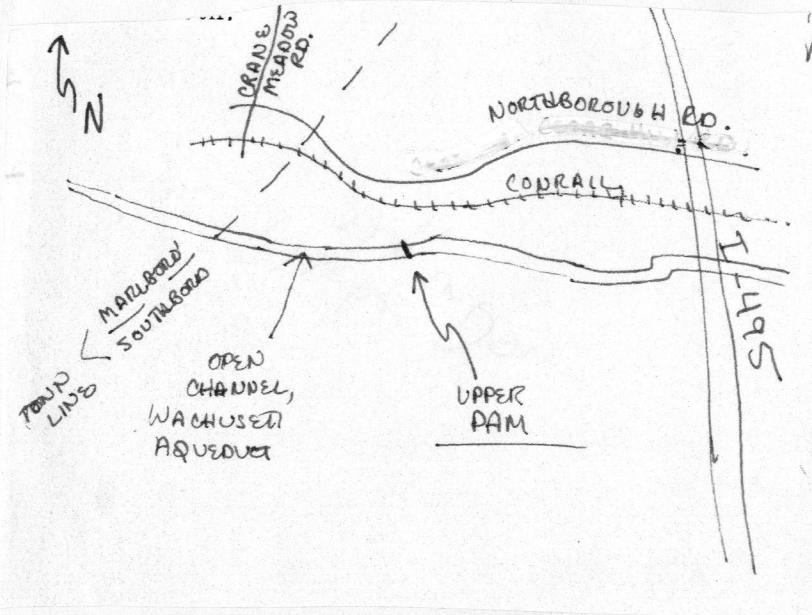 N
CRANE
MEADOW
RD.
NORTHBOROUGH RD.
CONRAIL
I-495
MARLBORO'
SOUTHBORO
TOWN
LINE
OPEN
CHANNEL,
WACHUSETT
AQUEDUCT
UPPER
DAM